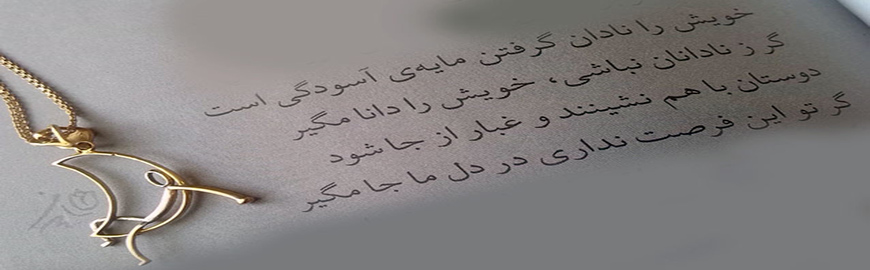 خویش را نادان گرفتن مایه‌ی آسودگی است
گر ز نادانان نباشی، خویش را دانا مگیر
دوستان با هم نشینند و غبار از جا شود
گر تو این فرصت نداری در دل ما جا مگیر